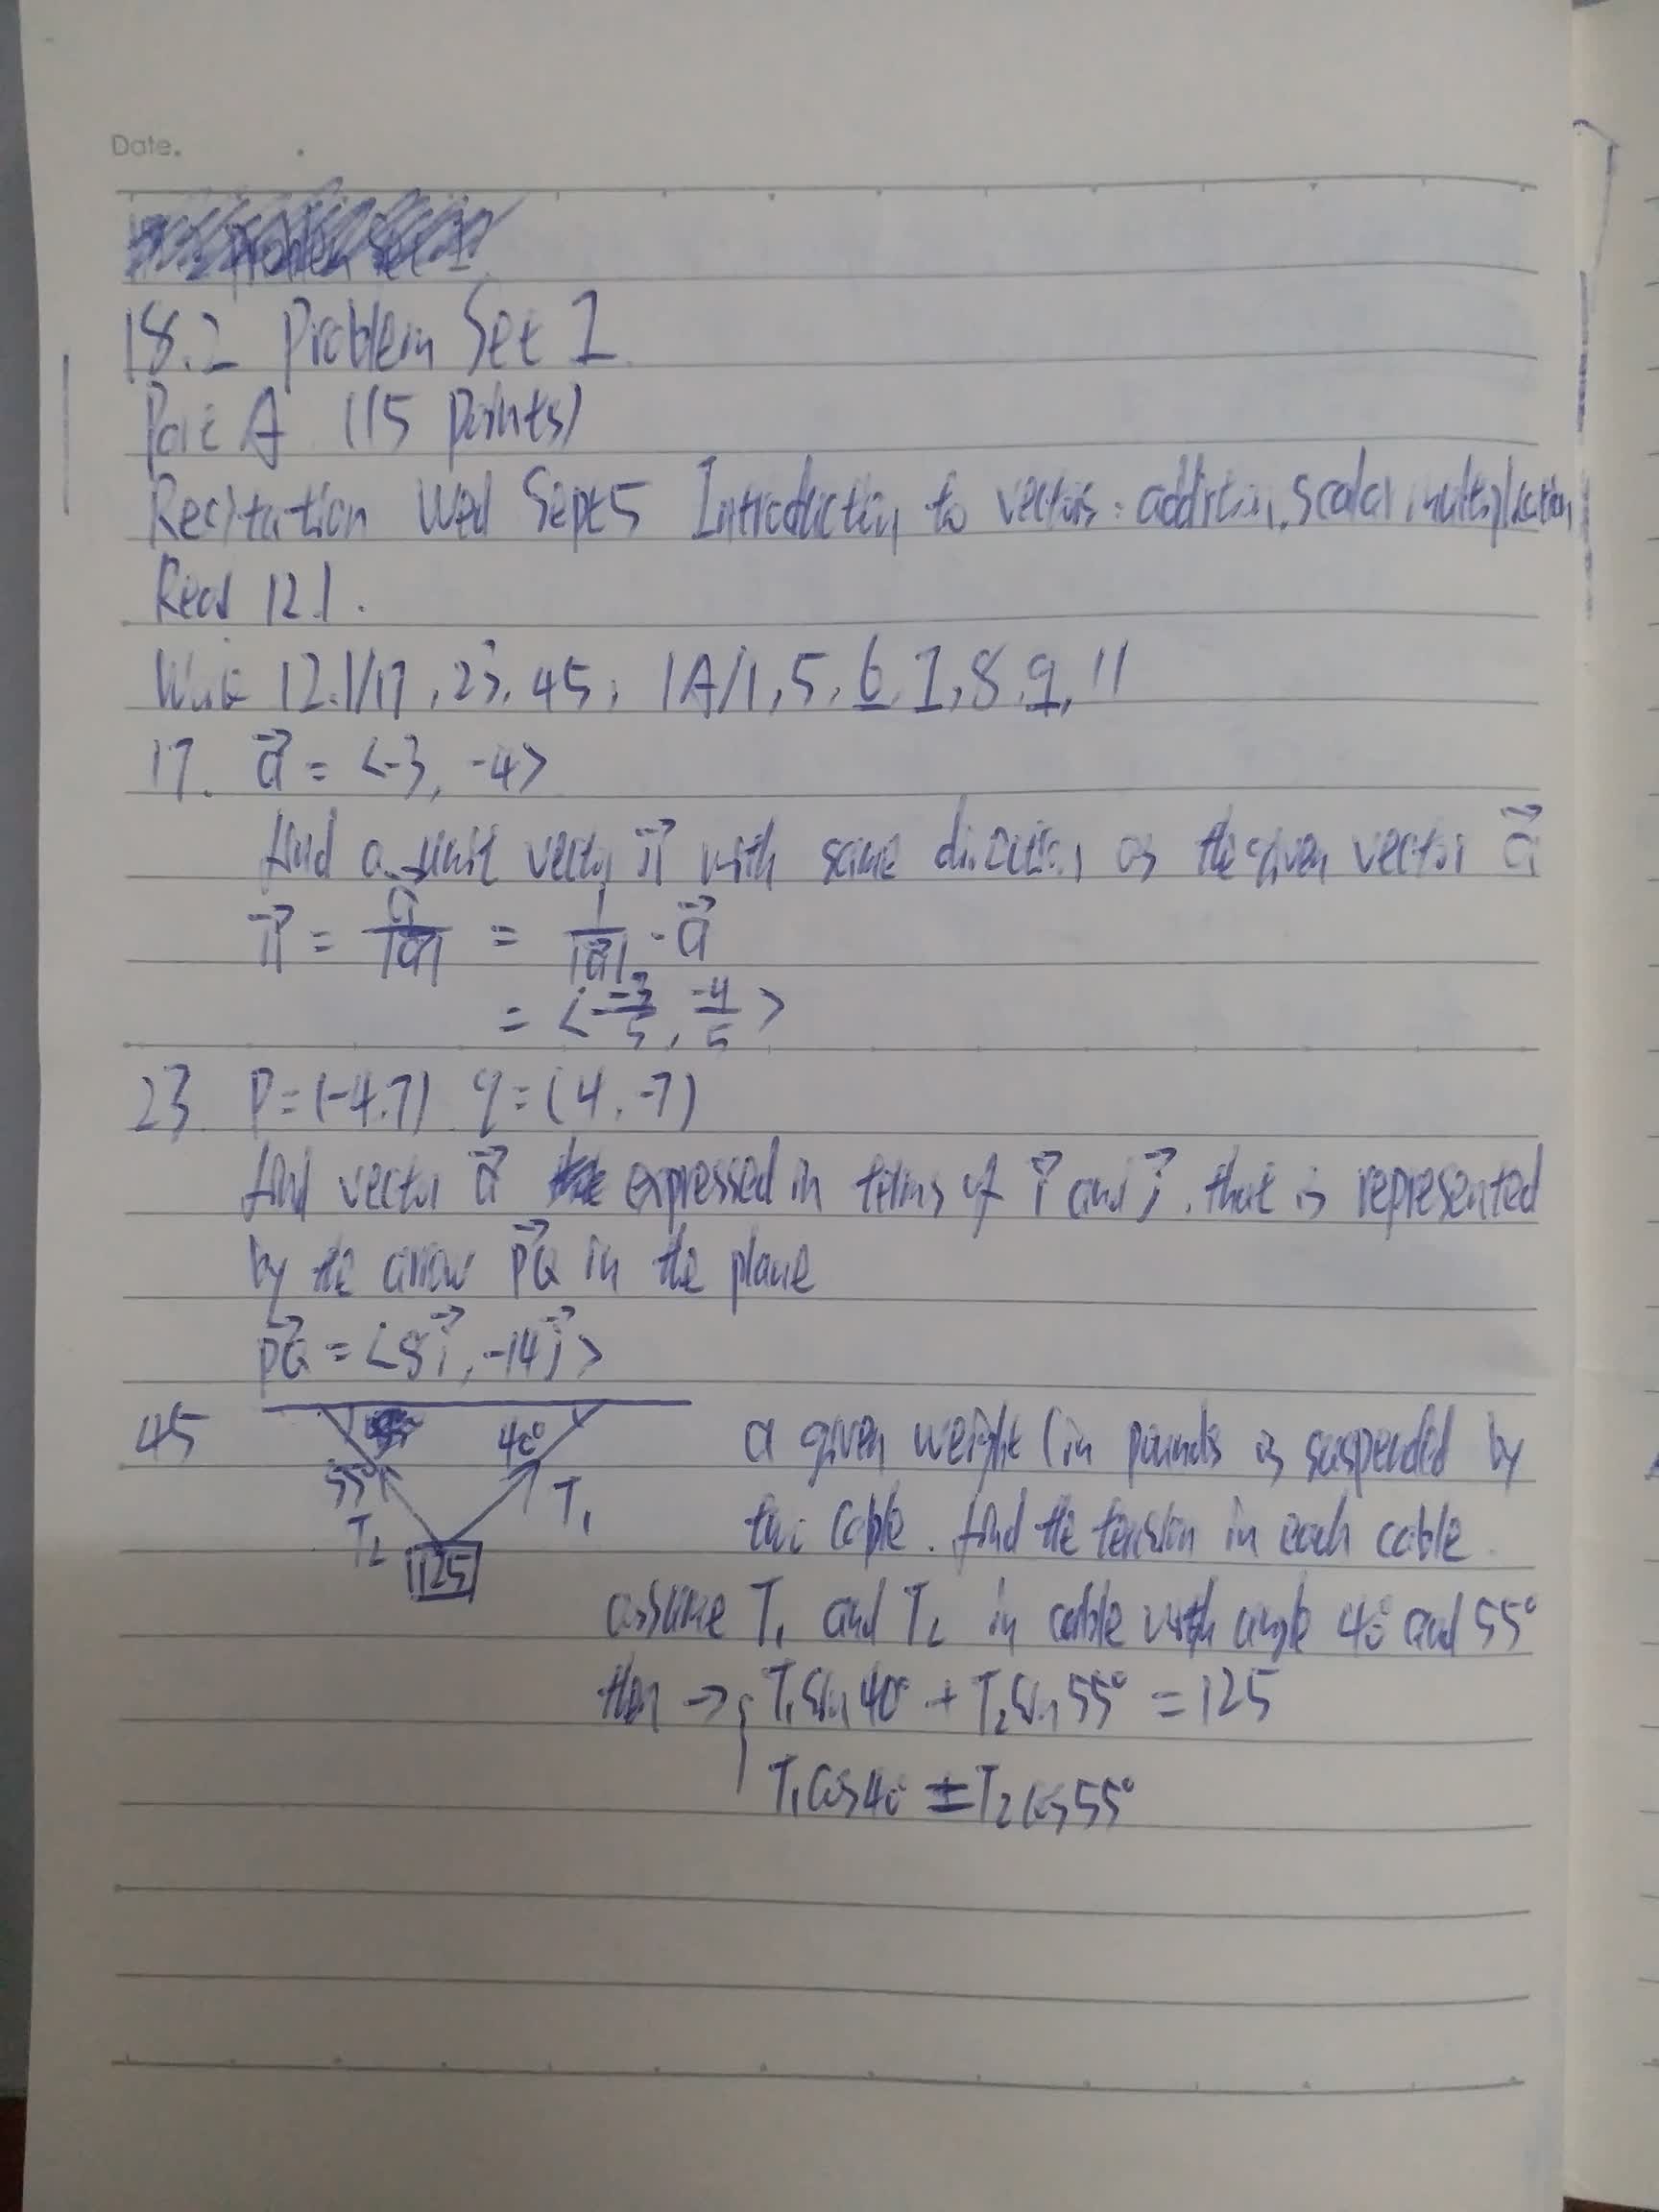 Date.
18.2 Problem Set 1
Part A (15 points)
Recitation Wed Sept 5 Introduction to vectors: addition, scalar multiplication
Read 12.1.
Work 12.1/17, 23, 45; 1A/1, 5, 6, 7, 8, 9, 11
17. a⃗ = <-3, -4>
find a unit vector u⃗ with same direction as the given vector a⃗
u⃗ = a⃗/|a⃗| = 1/|a⃗| · a⃗
= <-3/5, -4/5>
23 P=(-4,7) q=(4,-7)
find vector a⃗ expressed in terms of i⃗ and j⃗, that is represented
by the arrow PQ⃗ in the plane
PQ⃗ = <8i⃗, -14j⃗>
45 55° 40° T₂ T₁ 125
a given weight (in pounds is suspended by
two cable. find the tension in each cable.
assume T₁ and T₂ in cable with angle 40° and 55°
then → { T₁sin40° + T₂sin55° = 125
T₁cos40° = T₂cos55°